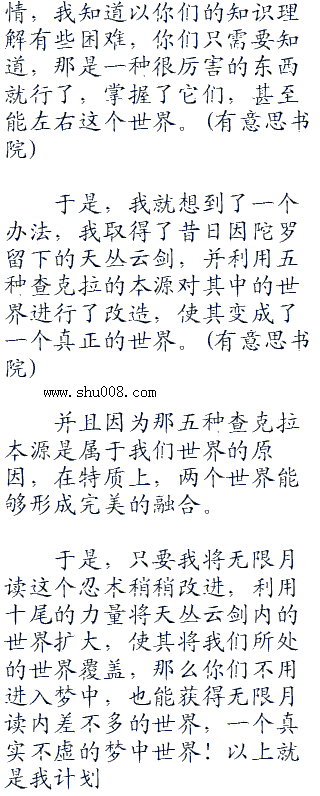 情，我知道以你们的知识理
解有些困难，你们只需要知
道，那是一种很厉害的东西
就行了，掌握了它们，甚至
能左右这个世界。(有意思书
院)
于是，我就想到了一个
办法，我取得了昔日因陀罗
留下的天丛云剑，并利用五
种查克拉的本源对其中的世
界进行了改造，使其变成了
一个真正的世界。(有意思书
院)
www.shu008.com
并且因为那五种查克拉
本源是属于我们世界的原
因，在特质上，两个世界能
够形成完美的融合。
于是，只要我将无限月
读这个忍术稍稍改进，利用
十尾的力量将天丛云剑内的
世界扩大，使其将我们所处
的世界覆盖，那么你们不用
进入梦中，也能获得无限月
读内差不多的世界，一个真
实不虚的梦中世界！以上就
是我计划